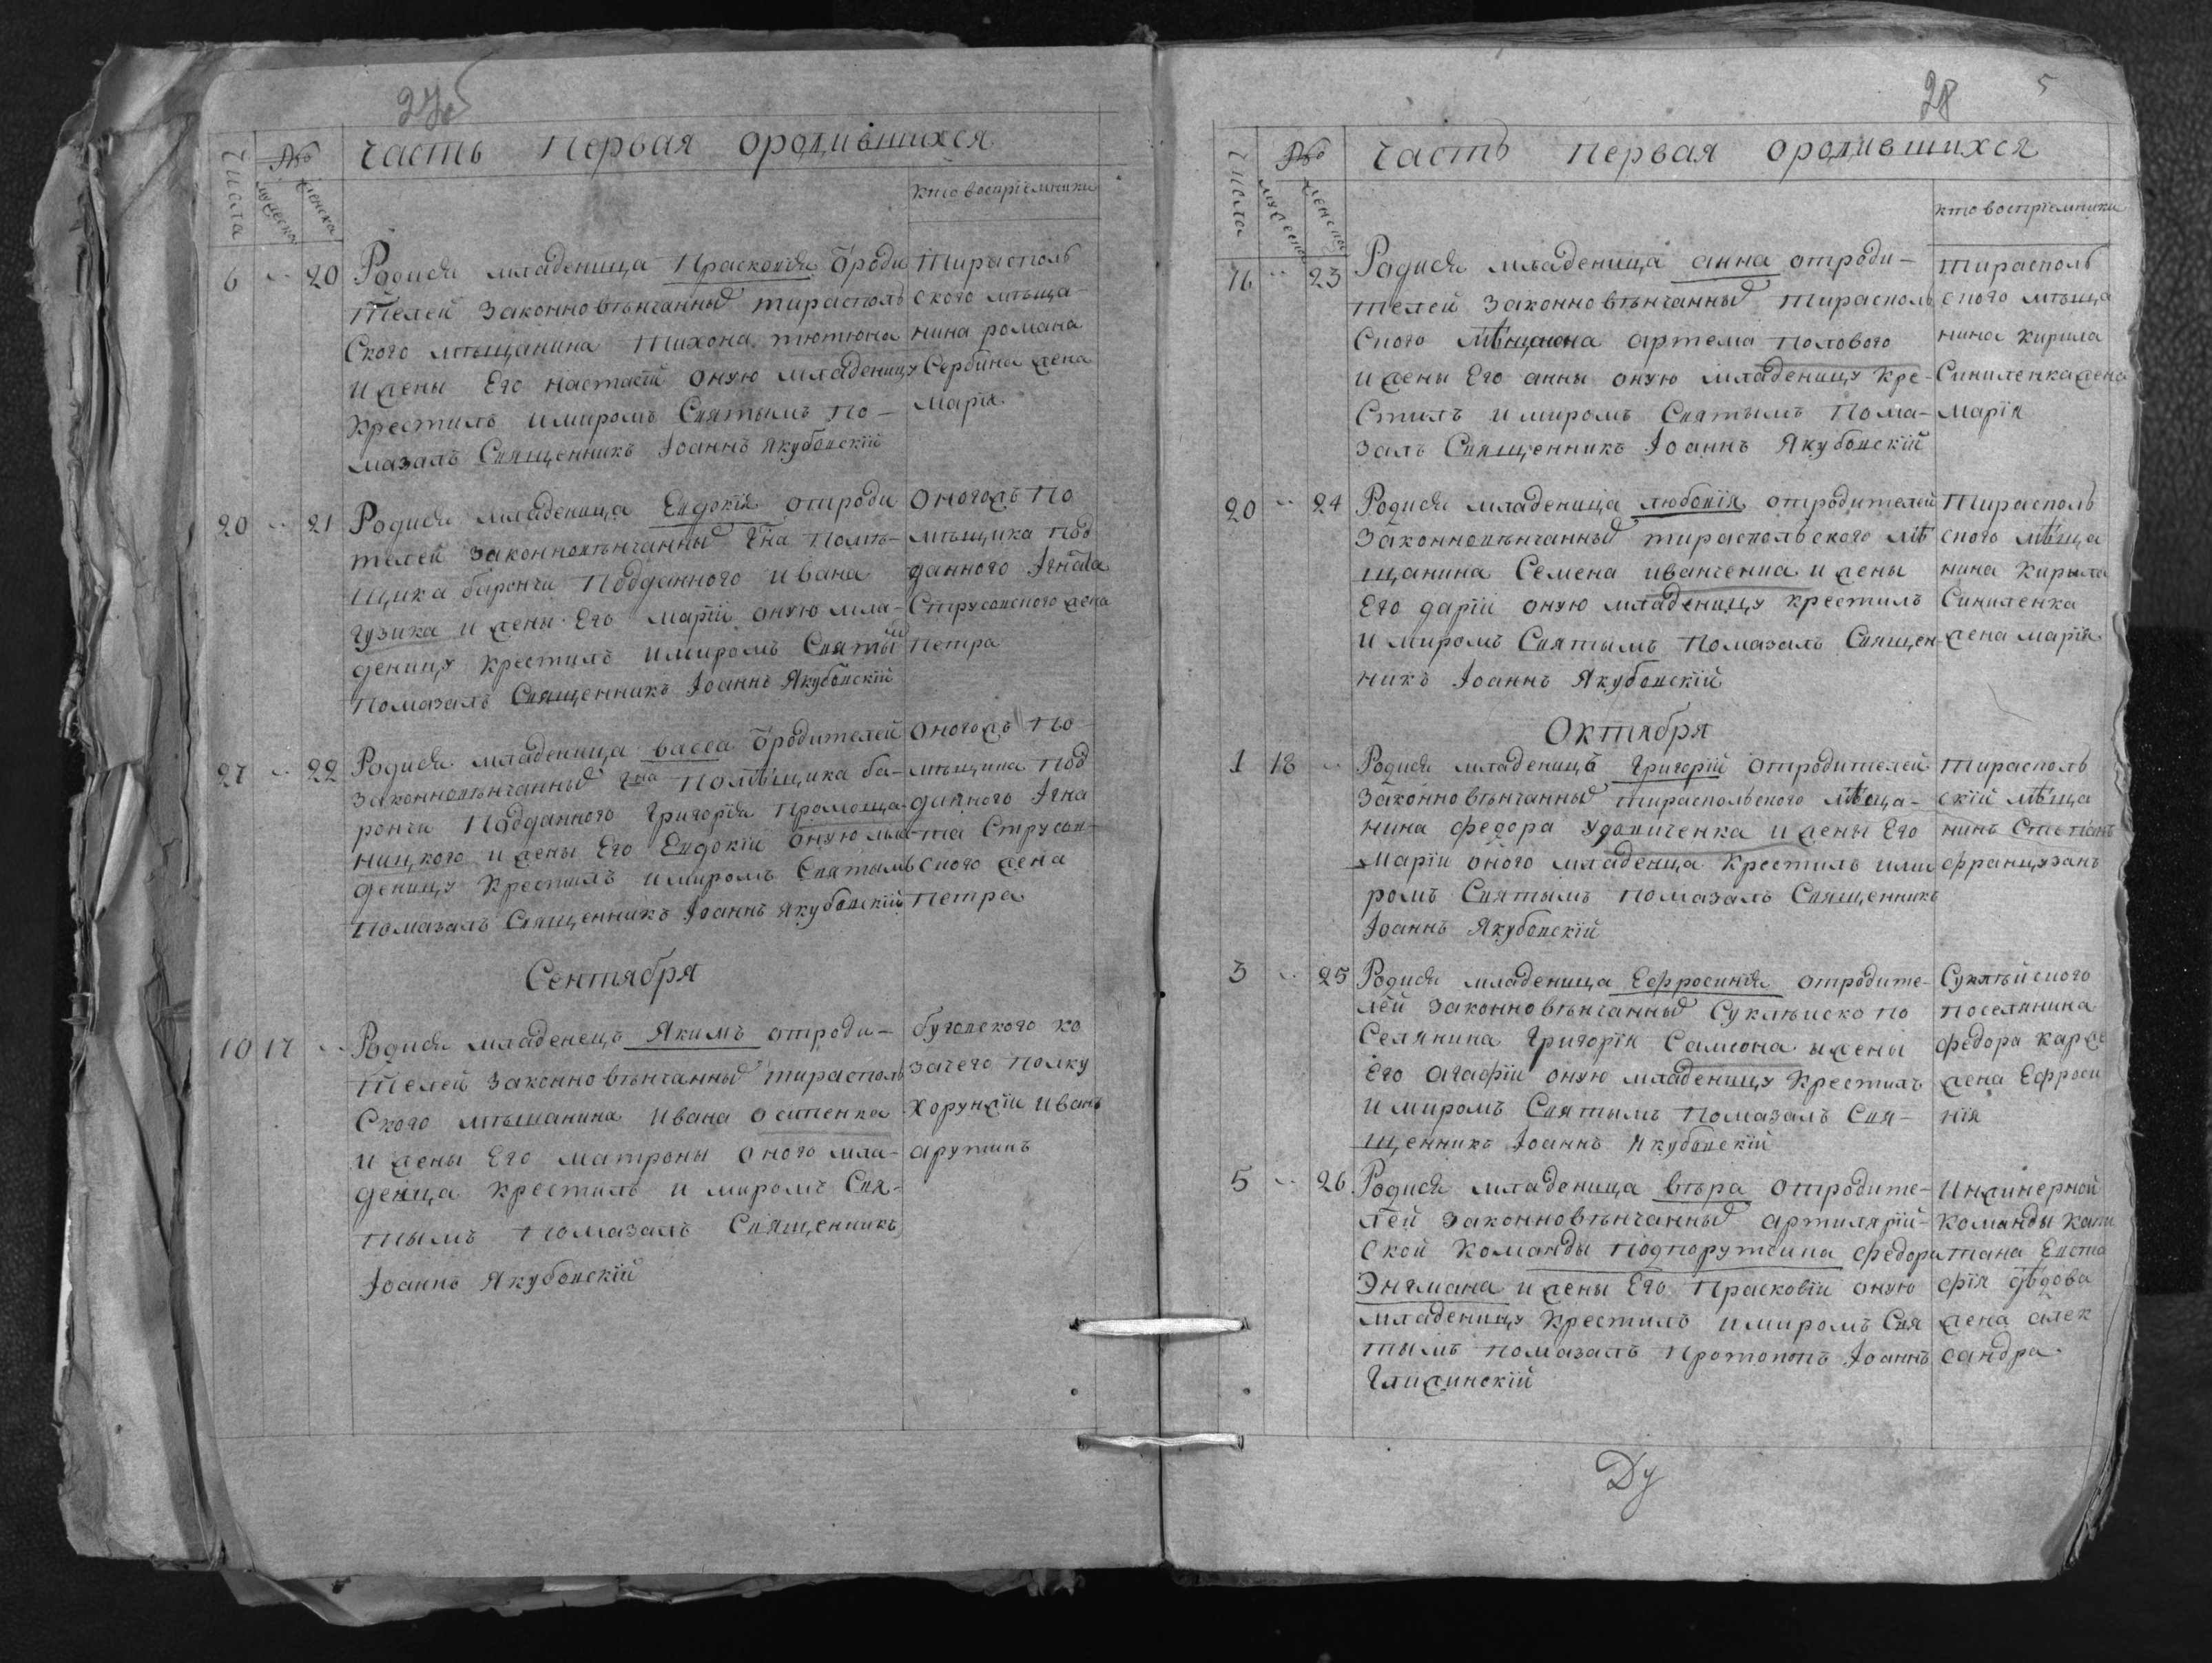 27об
Числа № мужеска женска Часть первая ородившихся
кто восприемники
6 20 Родися младеница Прасковія ѿроди
телей законно вѣнчанныхъ тирасполь
ского мѣщанина Тихона тютюна
и жены Его настасіи оную младеницу
крестилъ имиромъ Святымъ по-
мазалъ Священникъ Іоаннъ Якубовскій
тирасполь
ского мѣща
нина романа
Сербина жена
марія
20 21 Родися младеница Евдокія отроди
телей законновѣнчанныхъ Гна помѣ-
щика барончи подданного ивана
гузика и жены Его маріи оную мла-
деницу крестилъ имиромъ Святымъ
помазалъ Священникъ Іоаннъ Якубовскій
оногожъ по
мѣщика под
данного Игната
Струсовского жена
петра
27 22 Родися младеница васса ѿродителей
законновѣнчанныхъ Гна помѣщика ба-
рончи подданного Григорія
ницкого и жены Его Евдокіи оную мла
деницу крестилъ имиромъ Святымъ
помазалъ Священникъ Іоаннъ Якубовскій
оногожъ по
мѣщика под
данного Игна
та Струсов-
ского жена
петра
Сентября
10 17 Родися младенецъ Якимъ отроди-
телей законно вѣнчанныхъ тирасполь
ского мѣщанина ивана осипенка
и жены Его матроны оного мла-
денца крестилъ и миромъ Свя-
тымъ помазалъ Священникъ
Іоаннъ Якубовскій
бугского ко
зачего полку
хорунжіи иванъ
арутинъ
28 5
Числа № мужеска женска Часть первая ородившихся
кто восприемники
16 23 Родися младеница анна отроди-
телей законно вѣнчанныхъ тирасполь
ского мѣщанина артема полового
и жены Его анны оную младеницу кре-
стилъ и миромъ Святымъ пома-
залъ Священникъ Іоаннъ Якубовскій
тирасполь
ского мѣща
нина кирила
Синиленка жена
марія
20 24 Родися младеница любовія отродителей
законновѣнчанныхъ тираспольского мѣ
щанина Семена иванченка и жены
Его даріи оную младеницу крестилъ
и миромъ Святымъ помазалъ Священ-
никъ Іоаннъ Якубовскій
тирасполь
ского мѣща
нина кирыла
Синиленка
жена марія
Октября
1 18 Родися младеницъ Григорій отродителей
законно вѣнчанныхъ тираспольского мѣща-
нина федора удовиченка и жены Его
маріи оного младенца крестилъ ими
ромъ Святымъ помазалъ Священникъ
Іоаннъ Якубовскій
тирасполь
скій мѣща
нинъ Степанъ
французанъ
3 25 Родися младеница Ефросинія отродите-
лей законно вѣнчанныхъ Суклѣиско по
Селянина Григорія Самсона и жены
Его агафіи оную младеницу крестилъ
и миромъ Святымъ помазалъ Свя-
щенникъ Іоаннъ Якубовскій
Суклѣйского
поселянина
федора
жена Ефроси
нія
5 26 Родися младеница вѣра отродите-
лей законновѣнчанныхъ артилярій-
ской команды подпорутчика федора
Энгмана и жены Его Прасковіи оную
младеницу крестилъ имиромъ Свя
тымъ помазалъ протопопъ Іоаннъ
Глижинскій
инжинерной
команды капи
тана Евста
фія дѣдова
жена алек
сандра
Ду